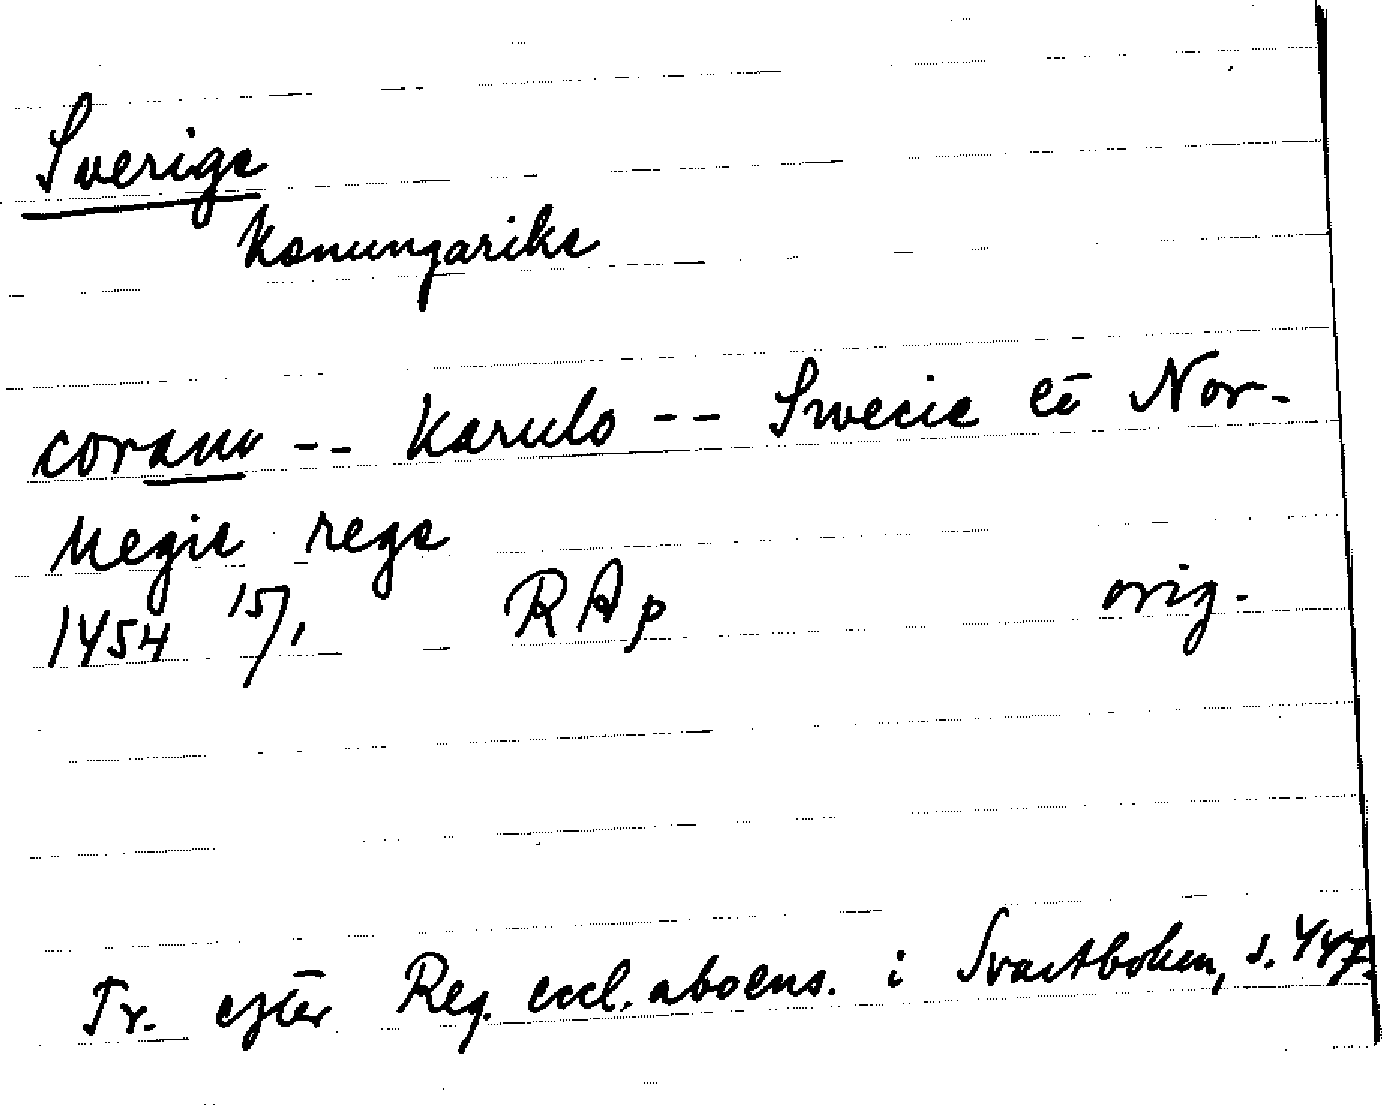 Sverige
Konungarike
coram -- Karulo -- Swecie et Nor-
Megie rege
1454 15/1 RAp orig.
Tr. efter Reg. eccl. aboens. i Svartboken, s. 447.